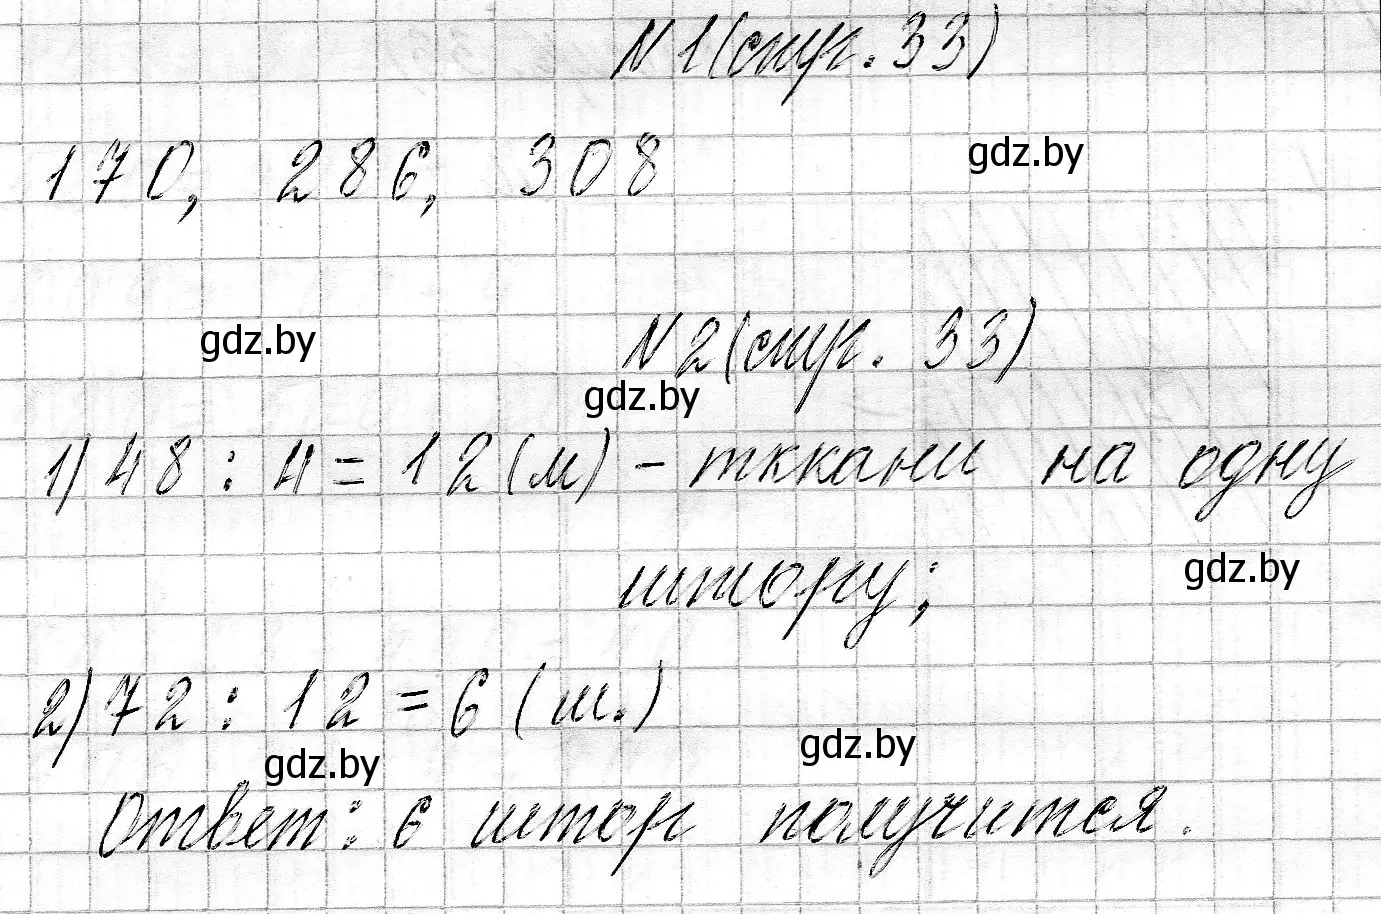 №1(стр. 33)
170, 286, 308
gdz.by
gdz.by
№2(стр. 33)
gdz.by
1) 48 : 4 = 12 (м) - тккани на одну
штору;
gdz.by
2) 72 : 12 = 6 (ш.)
gdz.by
gdz.by
Ответ: 6 штор получится.